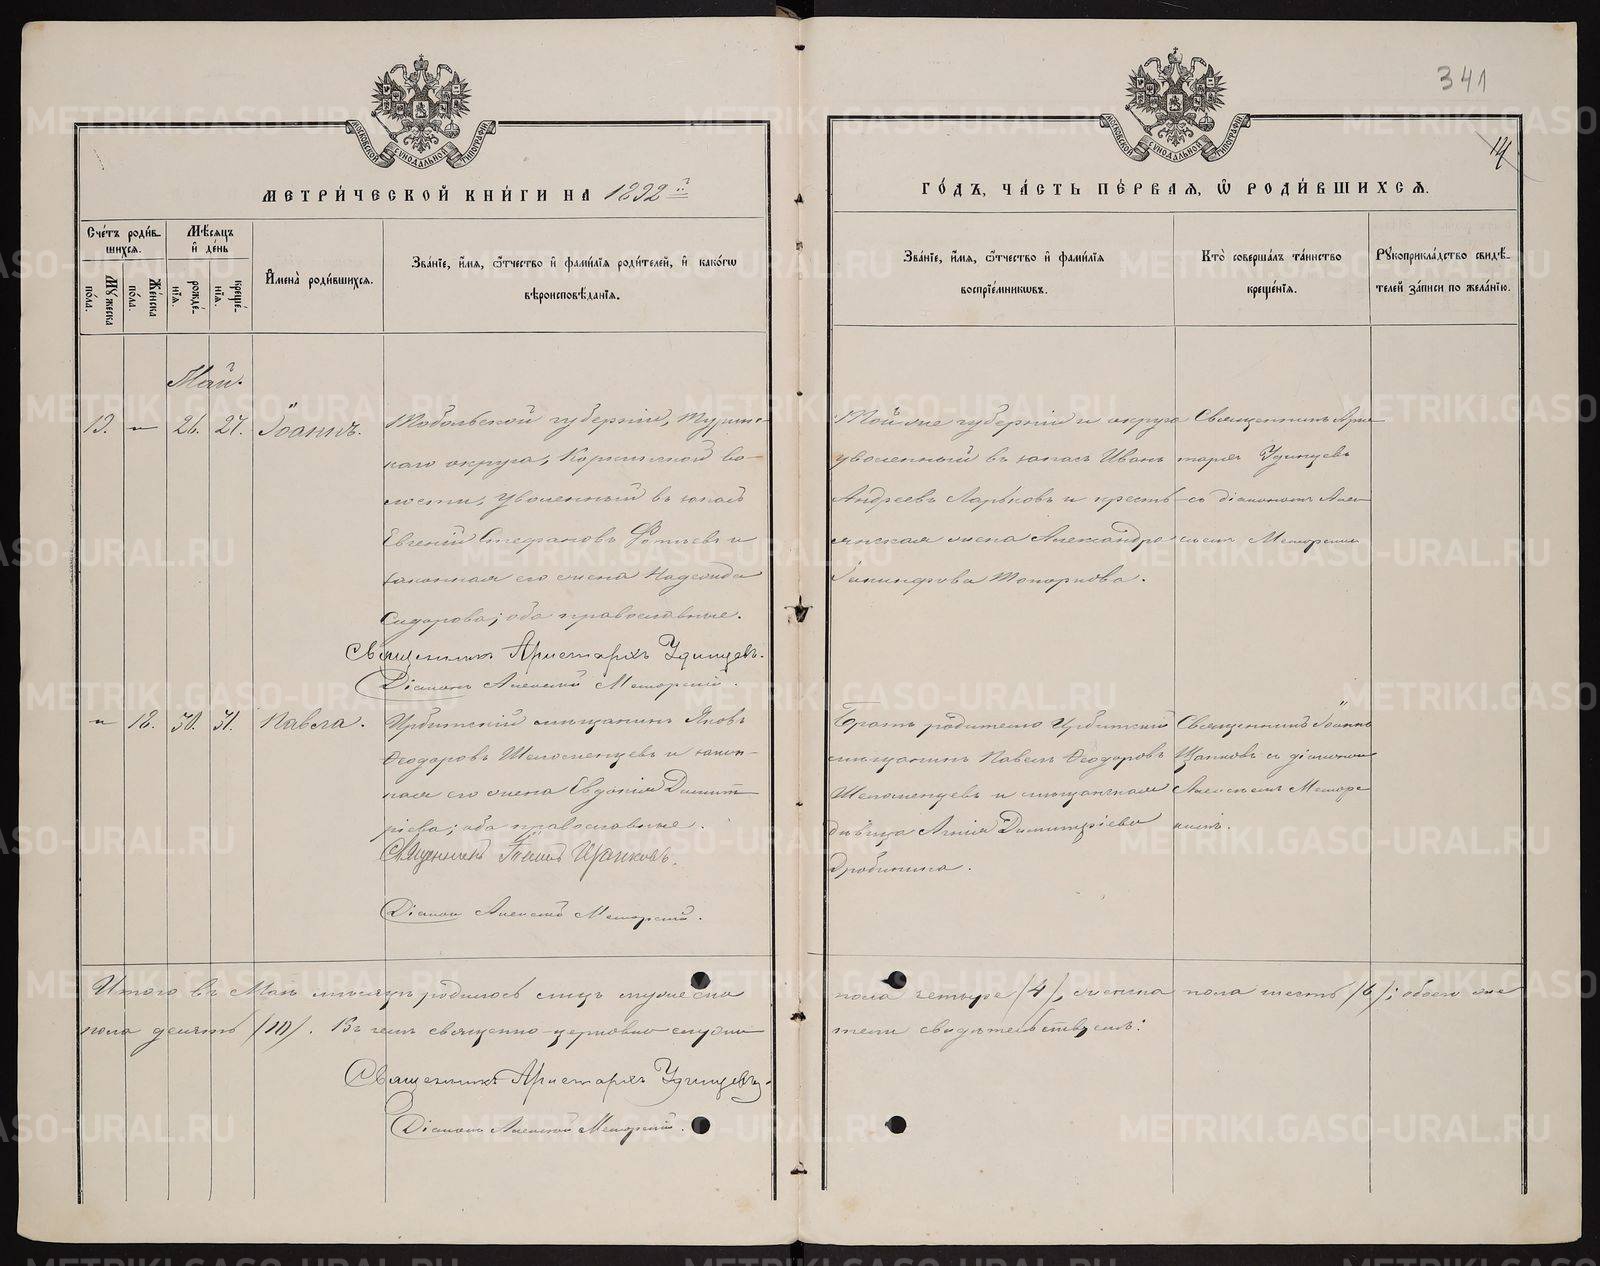 341
14
МОСКОВСКОЙ СУНОДАЛЬНОЙ ТИПОГРАФІИ
МОСКОВСКОЙ СУНОДАЛЬНОЙ ТИПОГРАФІИ
МЕТРИ́ЧЕСКОЙ КНИ́ГИ НА 1892й
ГО́ДЪ, ЧА́СТЬ ПЕ́РВАЯ, Ѿ РОДИ́ВШИХСЯ.
Сче́тъ роди́в-
шихся.
Мꙋжеска по́ла.
Же́нска по́ла.
Мѣ́сяцъ
и҆ де́нь
рожде́-
нїя.
креще́-
нїя.
И҆мена̀ роди́вшихся.
Зва́нїе, и҆́мя, ѻ҆́тчество и҆ фамилїя роди́телей, и҆ како́гѡ
вѣроисповѣ́данїя.
Зва́нїе, и҆́мя, ѻ҆́тчество и҆ фамилїя
воспрїе́мникѡвъ.
Кто̀ соверша́лъ та́инство
креще́нїя.
Рꙋкоприкла́дство свидѣ́-
телей за́писи по жела́нїю.
Май.
19. — 26. 27. Іоаннъ.
Тобольской губерніи, Турин-
скаго округа, Коркинской во-
лости, уволенный въ запасъ
Евгеній Стефановъ Фотѣевъ и
законная его жена Надежда
Сидорова; оба православные.
Священникъ Аристархъ Удинцевъ.
Діаконъ Алексій Меморскій.
Той же губерніи и округа
уволенный въ запасъ Иванъ
Андреевъ Ларьковъ и кресть-
янская жена Александра
Топоркова.
Священникъ Арис-
тархъ Удинцевъ
съ діакономъ Алек-
сѣемъ Меморскимъ
— 18. 30. 31. Павела.
Ирбитскій мѣщанинъ Яковъ
Ѳеодоровъ Шеломенцевъ и закон-
ная его жена Евдокія Димит-
ріева; оба православные.
Священникъ Іоаннъ Цапковъ.
Діаконъ Алексій Меморскій.
Братъ родителю Ирбитскій
мѣщанинъ Павелъ Ѳеодоровъ
Шеломенцевъ и мѣщанская
дѣвица Агнія Димитріева
Дробинина.
Священникъ Іоаннъ
Цапковъ съ діакономъ
Алексѣемъ Мемор-
скимъ.
Итого въ Маѣ мѣсяцѣ родилось лицъ мужеска пола четыре /4/, женска пола шесть /6/; обоего же
пола десять /10/. Въ чемъ священно-церковно-служи-тели свидѣтельствуемъ:
Священникъ Аристархъ Удинцевъ.
Діаконъ Алексій Меморскій.
METRIKI.GASO-URAL.RU